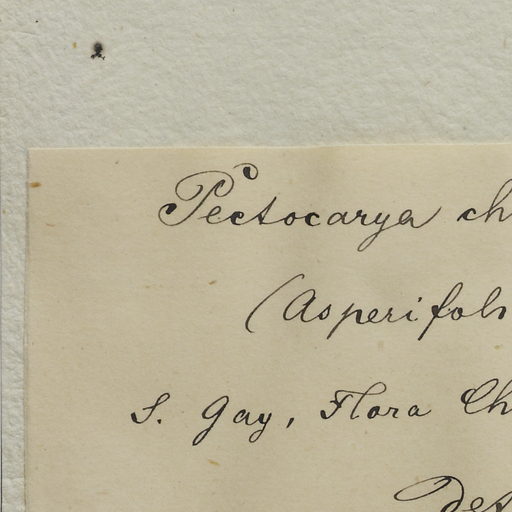 Pectocarya ch
(Asperifoli
S. Gay, Flora Ch
Det